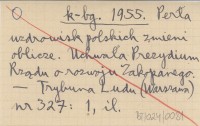 O k-bg. 1955. Perła
uzdrowisk polskich zmieni
oblicze. Uchwała Prezydium
Rządu o rozwoju Zakopanego.
— Trybuna Ludu (Warszawa)
nr 327: 1, il.